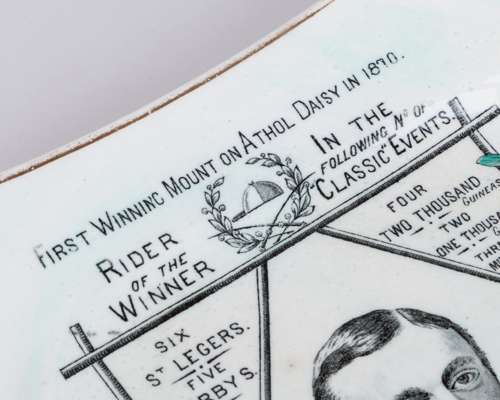 FIRST WINNING MOUNT ON ATHOL DAISY IN 1870.
RIDER
OF THE
WINNER
IN THE
FOLLOWING No OF
"CLASSIC" EVENTS.
SIX
ST LEGERS.
FIVE
FOUR
TWO THOUSAND
GUINEAS
TWO
ONE THOUSAND